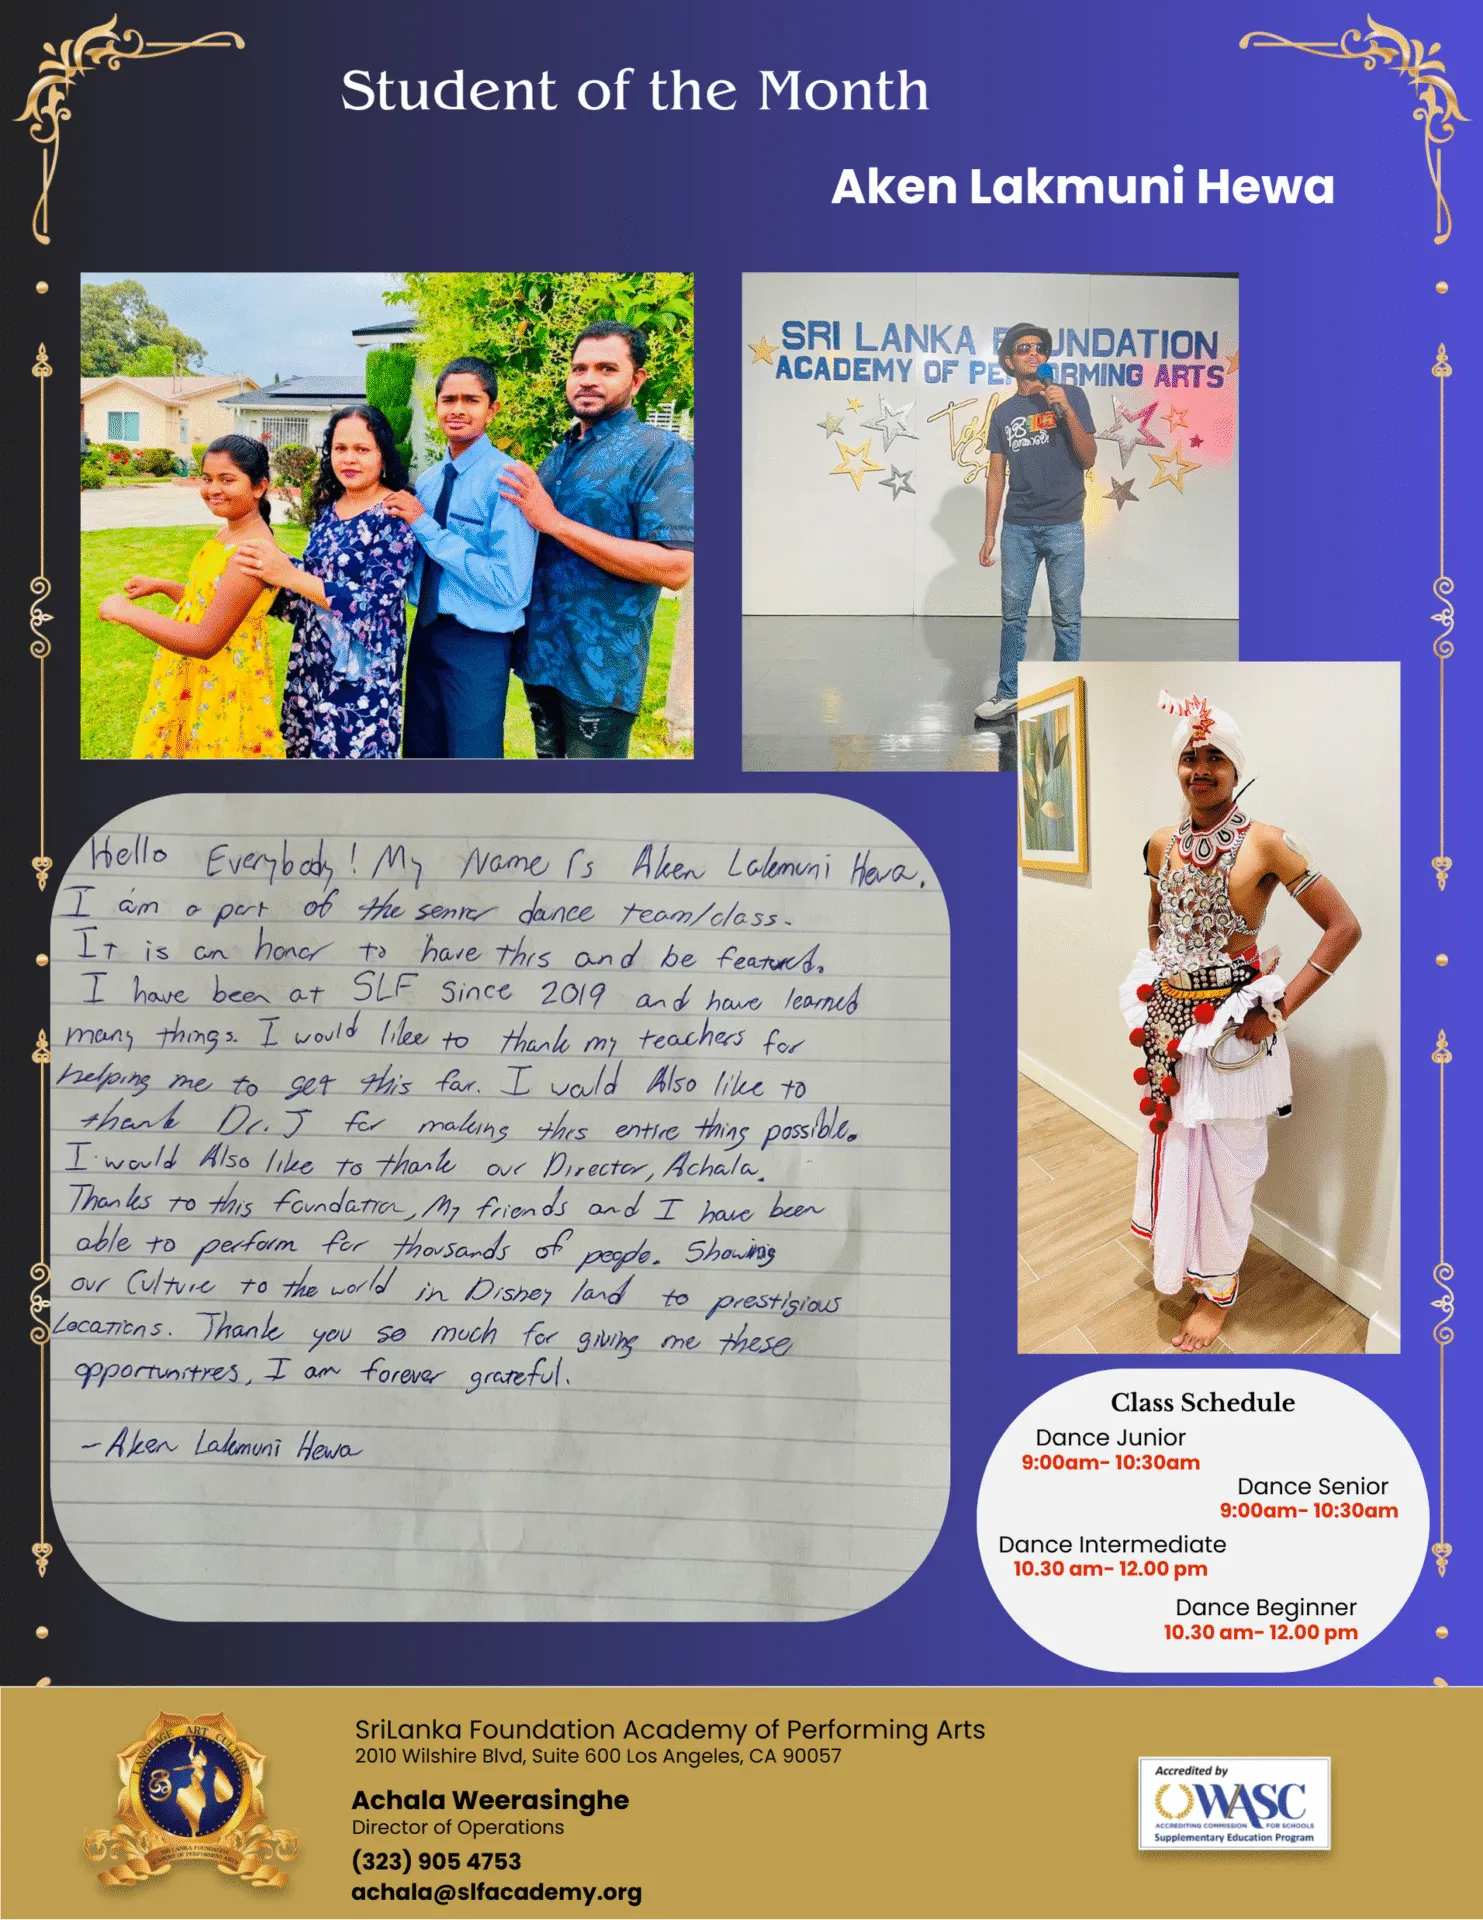 Student of the Month
Aken Lakmuni Hewa
SRI LANKA F UNDATION
ACADEMY OF PE ORMING ARTS
Hello Everybody! My Name Is Aken Lakmuni Hewa.
I am a part of the senior dance team/class.
It is an honor to have this and be featured.
I have been at SLF since 2019 and have learned
many things. I would like to thank my teachers for
helping me to get this far. I would Also like to
thank Dr. J for making this entire thing possible.
I would Also like to thank our Director, Achala.
Thanks to this foundation, My friends and I have been
able to perform for thousands of people. Showing
our Culture to the world in Disney land to prestigious
Locations. Thank you so much for giving me these
opportunities, I am forever grateful.
- Aken Lakmuni Hewa
Class Schedule
Dance Junior
9:00am- 10:30am
Dance Senior
9:00am- 10:30am
Dance Intermediate
10.30 am- 12.00 pm
Dance Beginner
10.30 am- 12.00 pm
LANGUAGE ART CULTURE
SRI LANKA FOUNDATION
ACADEMY OF PERFORMING ARTS
SriLanka Foundation Academy of Performing Arts
2010 Wilshire Blvd, Suite 600 Los Angeles, CA 90057
Achala Weerasinghe
Director of Operations
(323) 905 4753
achala@slfacademy.org
Accredited by
WASC
ACCREDITING COMMISSION FOR SCHOOLS
Supplementary Education Program